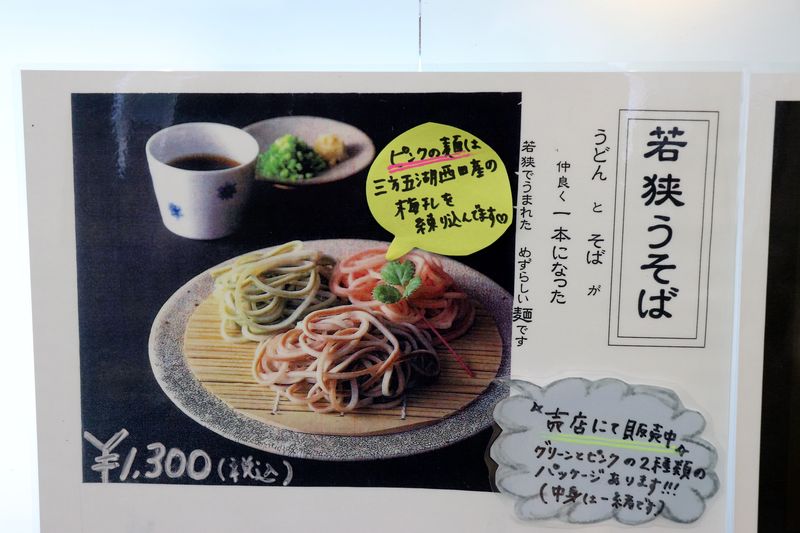 若狭うそば
うどん と そば が
仲良く 一本になった
若狭でうまれた めずらしい麺です
ピンクの麺は
三方五湖西田産の
梅干しを
練り込んでます♡
¥1,300(税込)
売店にて販売中☆
グリーンとピンクの2種類の
パッケージあります!!!
(中身は一緒です)